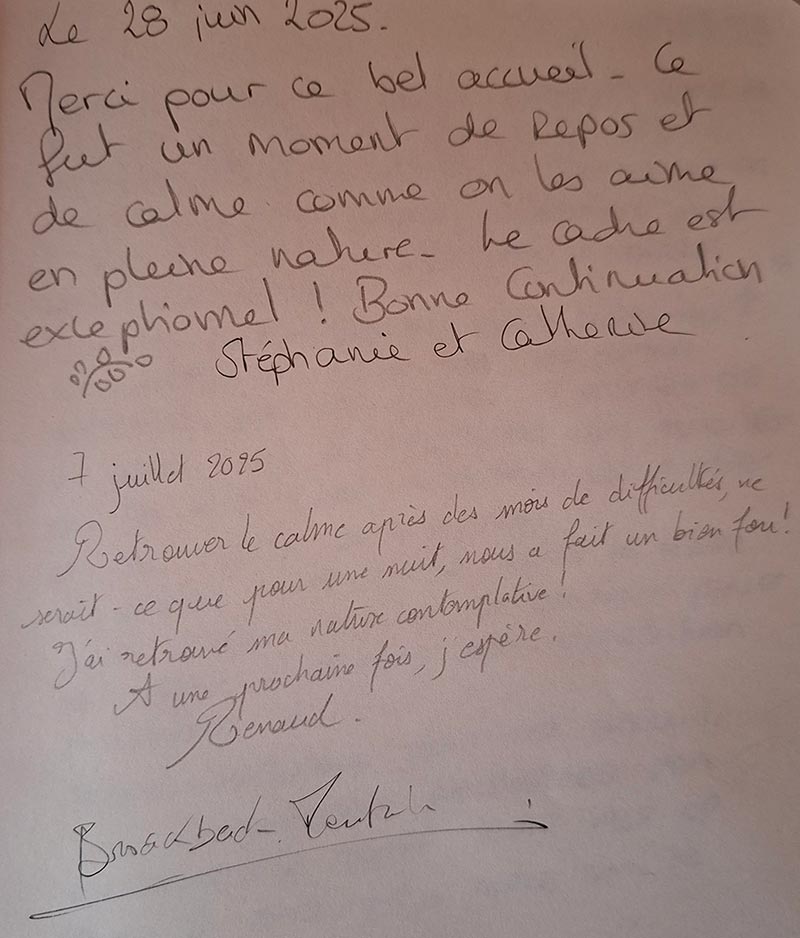 Le 28 juin 2025.
Merci pour ce bel accueil - Ce
fut un moment de repos et
de calme comme on les aime
en pleine nature - Le cadre est
exceptionnel ! Bonne Continuation
Stéphanie et Catherine
7 juillet 2025
Retrouver le calme après des mois de difficultés, ne
serait-ce que pour une nuit, nous a fait un bien fou !
J'ai retrouvé ma nature contemplative !
A une prochaine fois, j'espère.
Renaud.